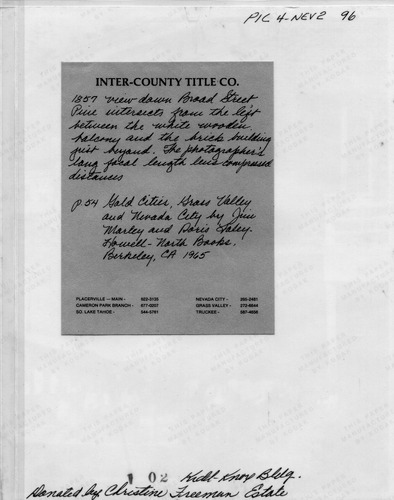 PIC 4-NEV2 96
INTER-COUNTY TITLE CO.
1857 view down Broad Street
Pine intersects from the left
between the white wooden
balcony and the brick building
just beyond. The photographer's
long focal length lens compressed
distances
p. 54 Gold Cities, Grass Valley
and Nevada City by Jim
Morley and Doris Foley.
Howell-North Books,
Berkeley, CA 1965
PLACERVILLE — MAIN - 622-3135 NEVADA CITY - 265-2481
CAMERON PARK BRANCH - 677-0257 GRASS VALLEY - 272-6844
SO. LAKE TAHOE - 544-5761 TRUCKEE - 587-4658
02 Kidd Knox Bldg.
Donated by Christine Freeman Estate